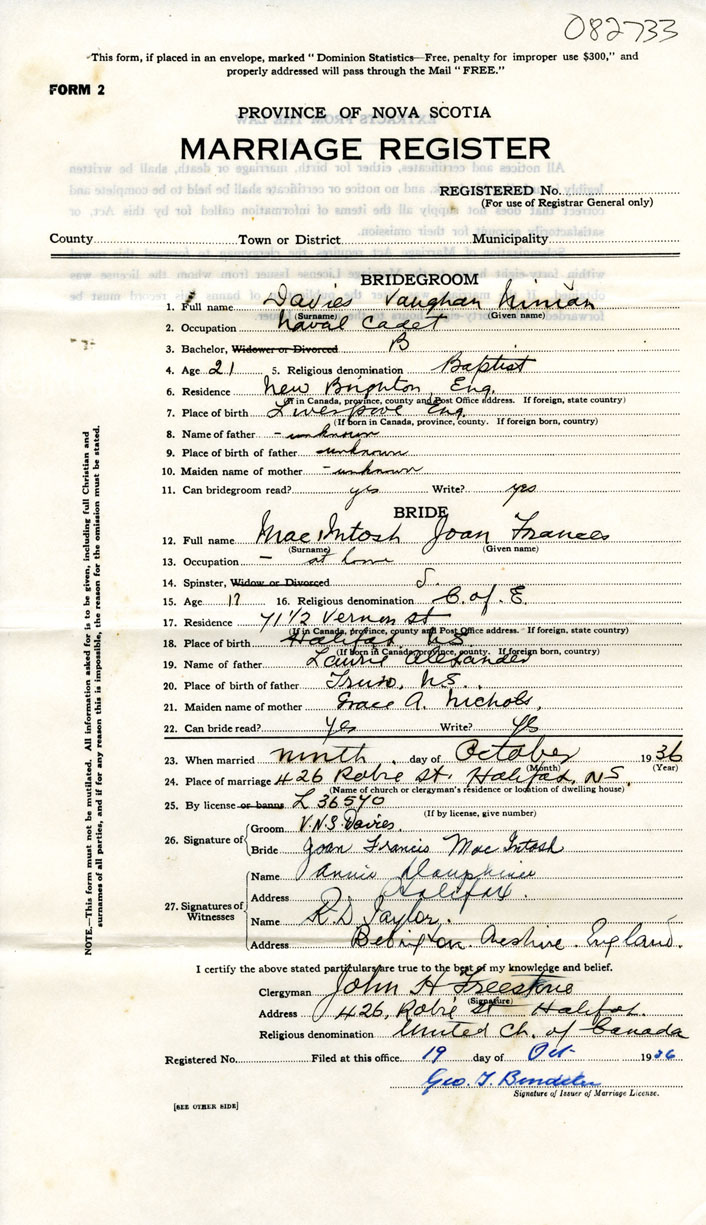 082733
This form, if placed in an envelope, marked “ Dominion Statistics—Free, penalty for improper use $300,” and
properly addressed will pass through the Mail “ FREE.”
FORM 2
PROVINCE OF NOVA SCOTIA
MARRIAGE REGISTER
REGISTERED No.
(For use of Registrar General only)
County Town or District Municipality
BRIDEGROOM
1. Full name Davies Vaughan Ninian
(Surname) (Given name)
2. Occupation Naval Cadet
3. Bachelor, Widower or Divorced B
4. Age 21 5. Religious denomination Baptist
6. Residence New Brighton, Eng.
(If in Canada, province, county and Post Office address. If foreign, state country)
7. Place of birth Liverpool Eng.
(If born in Canada, province, county. If foreign born, country)
8. Name of father - unknown
9. Place of birth of father - unknown
10. Maiden name of mother - unknown
11. Can bridegroom read? yes Write? yes
BRIDE
12. Full name MacIntosh Joan Frances
(Surname) (Given name)
13. Occupation — at home
14. Spinster, Widow or Divorced S.
15. Age 16. Religious denomination C. of E.
17. Residence 71 1/2 Vernon st
(If in Canada, province, county and Post Office address. If foreign, state country)
18. Place of birth Halifax N.S.
(If born in Canada, province, county. If foreign born, country)
19. Name of father Laurie Alexander
20. Place of birth of father Truro, N.S.
21. Maiden name of mother Grace A. Nichols,
22. Can bride read? Yes Write? Yes
23. When married ninth day of October 1936
(Month) (Year)
24. Place of marriage 426 Robie St. Halifax, N.S.
(Name of church or clergyman's residence or location of dwelling house)
25. By license or banns L 36570
(If by license, give number)
26. Signature of Groom V.N.S. Davies.
Bride Joan Francis MacIntosh
27. Signatures of Witnesses
Name Annie Dauphinee
Address Halifax.
Name R.D. Taylor.
Address Bebington. Cheshire. England.
I certify the above stated particulars are true to the best of my knowledge and belief.
Clergyman John H Freestone
(Signature)
Address 426, Robie St Halifax.
Religious denomination United Ch. of Canada
Registered No. Filed at this office 19 day of Oct 1936
Geo. T.
Signature of Issuer of Marriage License.
[SEE OTHER SIDE]
NOTE.—This form must not be mutilated. All information asked for is to be given, including full Christian and
surnames of all parties, and if for any reason this is impossible, the reason for the omission must be stated.